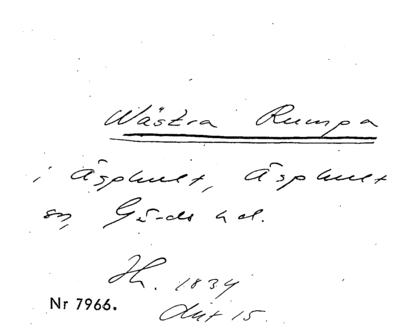 Wästra Rumpa
i Äsphult, Äsphult
sn, Gärds hd.
Jh. 1834
Akt 15.
Nr 7966.